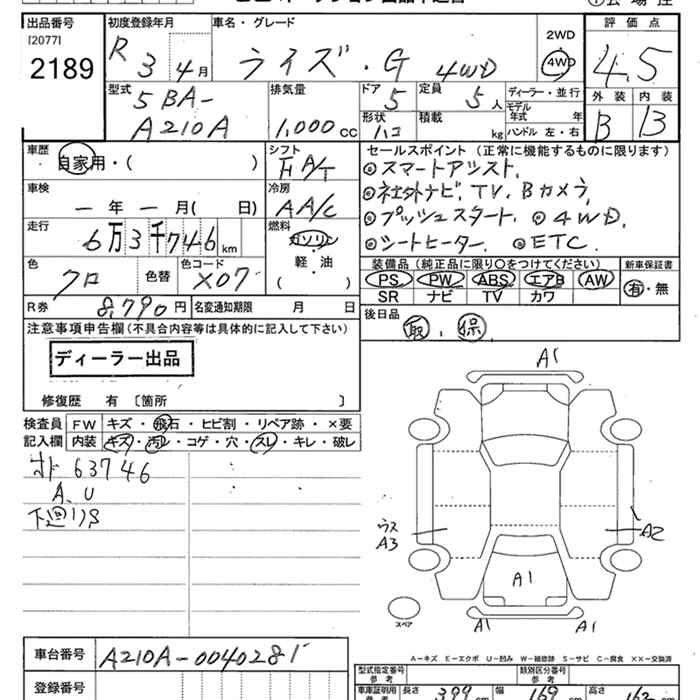 出品番号 初度登録年月 車名・グレード 評価点
[2077]
2189
R 3 4月
ライズ・G 4WD
2WD
4WD
4.5
外装 内装
B B
型式 排気量 ドア 定員 ディーラー・並行
5BA-
A210A
1,000cc
5 5人
モデル年式 年
形状 積載 kg ハンドル 左・右
ハコ
車歴 自家用・( )
シフト
F A/T
セールスポイント (正常に機能するものに限ります)
◎スマートアシスト,
◎社外ナビ,TV,Bカメラ,
◎プッシュスタート, ◎4WD,
◎シートヒーター, ◎ETC.
車検 ー年ー月( 日)
冷房
AA/C
走行
6万3千746km
燃料
ガソリン
軽・油
( )
色 クロ 色替 色コード X07
装備品(純正品に限り○をつけてください) 新車保証書
PS PW ABS エアB AW 有・無
SR ナビ TV カワ
R券 8,790円 名変通知期限 月 日
後日品
取, 保
注意事項申告欄(不具合内容等は具体的に記入して下さい)
ディーラー出品
修復歴 有〔箇所 〕
検査員 FW キズ・飛石・ヒビ割・リペア跡・×要
記入欄 内装 キズ・汚レ・コゲ・穴・スレ・キレ・破レ
オド63746
A,U
下廻りS
A1
ウス
A3
A2
A1
A1
A1
スペア
A−キズ E−エクボ U−凹み W−補修跡 S−サビ C−腐食 XX−交換済
車台番号 A210A-0040281
登録番号
型式指定番号 参考
類別区分番号 参考
車庫証明用 参考 長さ 399cm 幅 169cm 高さ 162cm